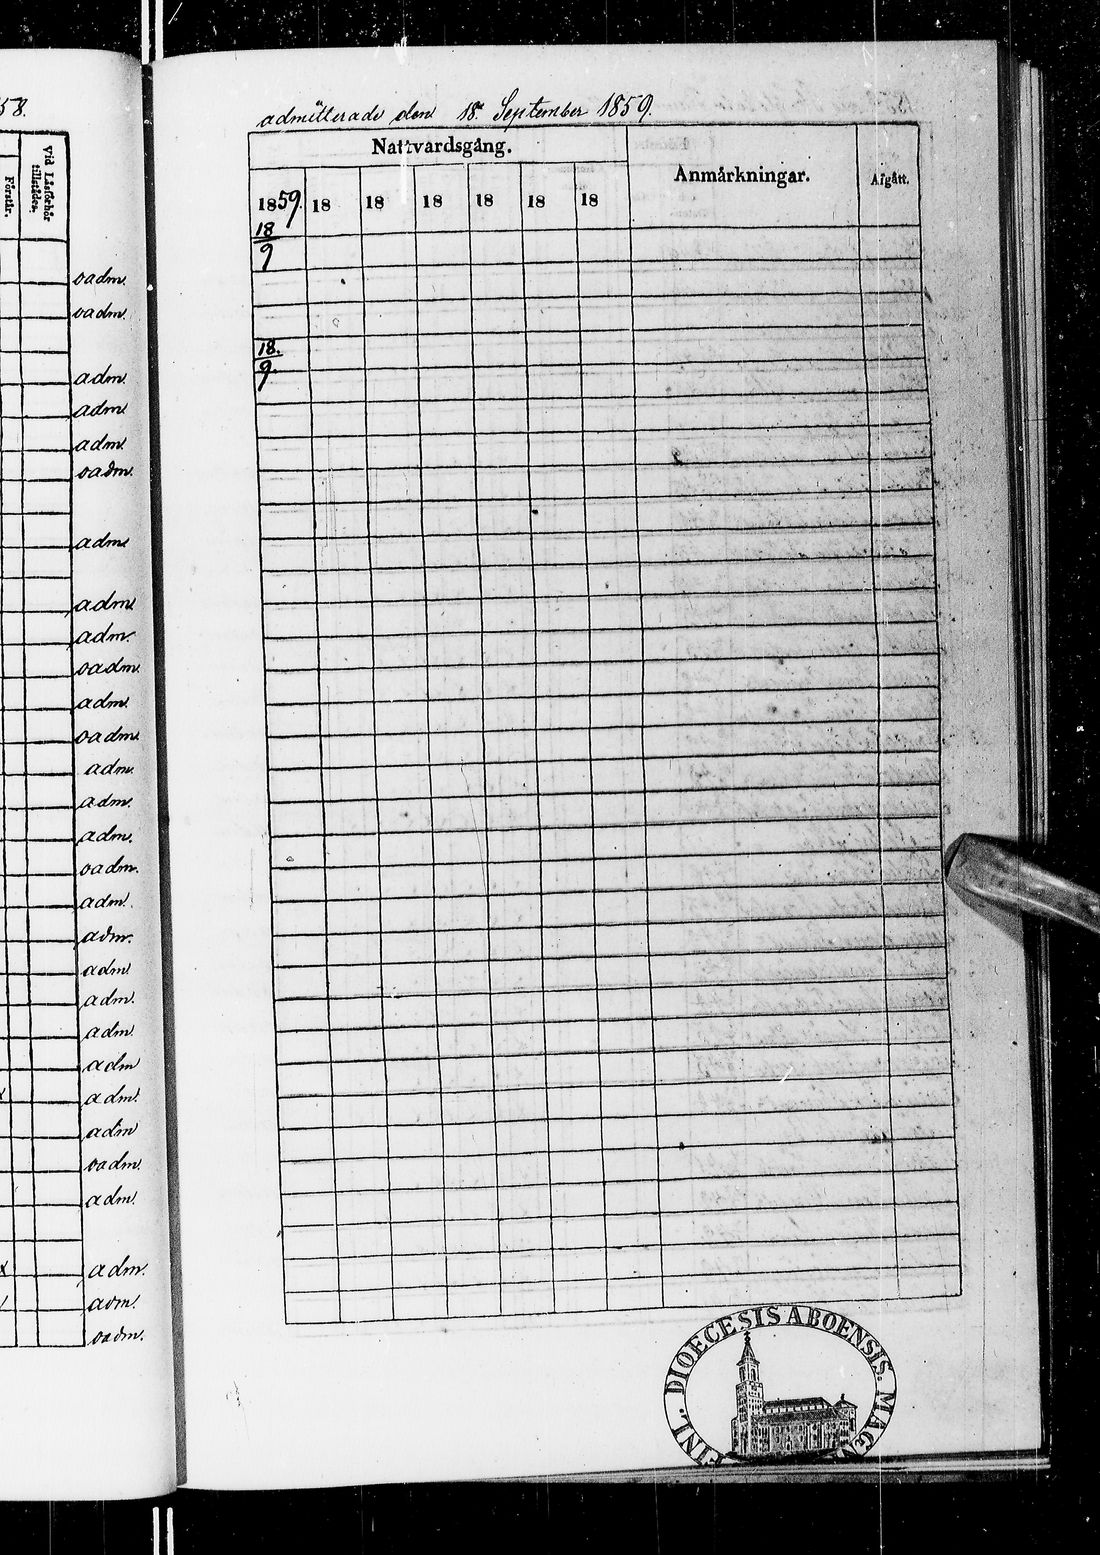 58.
Vid Läsförhör
tillstådes.
Förstår.
oadm.
oadm.
adm.
adm
adm.
oadm.
adm
adm
adm.
oadm.
adm.
oadm
adm.
adm.
adm.
oadm.
adm.
adm.
adm
adm.
adm
adm
adm.
adm
oadm.
adm.
x adm.
adm.
oadm.
admitterade den 18. September 1859.
Nattvardsgång.
Anmärkningar.
Afgått.
1859. 18 18 18 18 18 18
18
9
18.
9
FINL. DIOECESIS ABOENSIS. MAGN